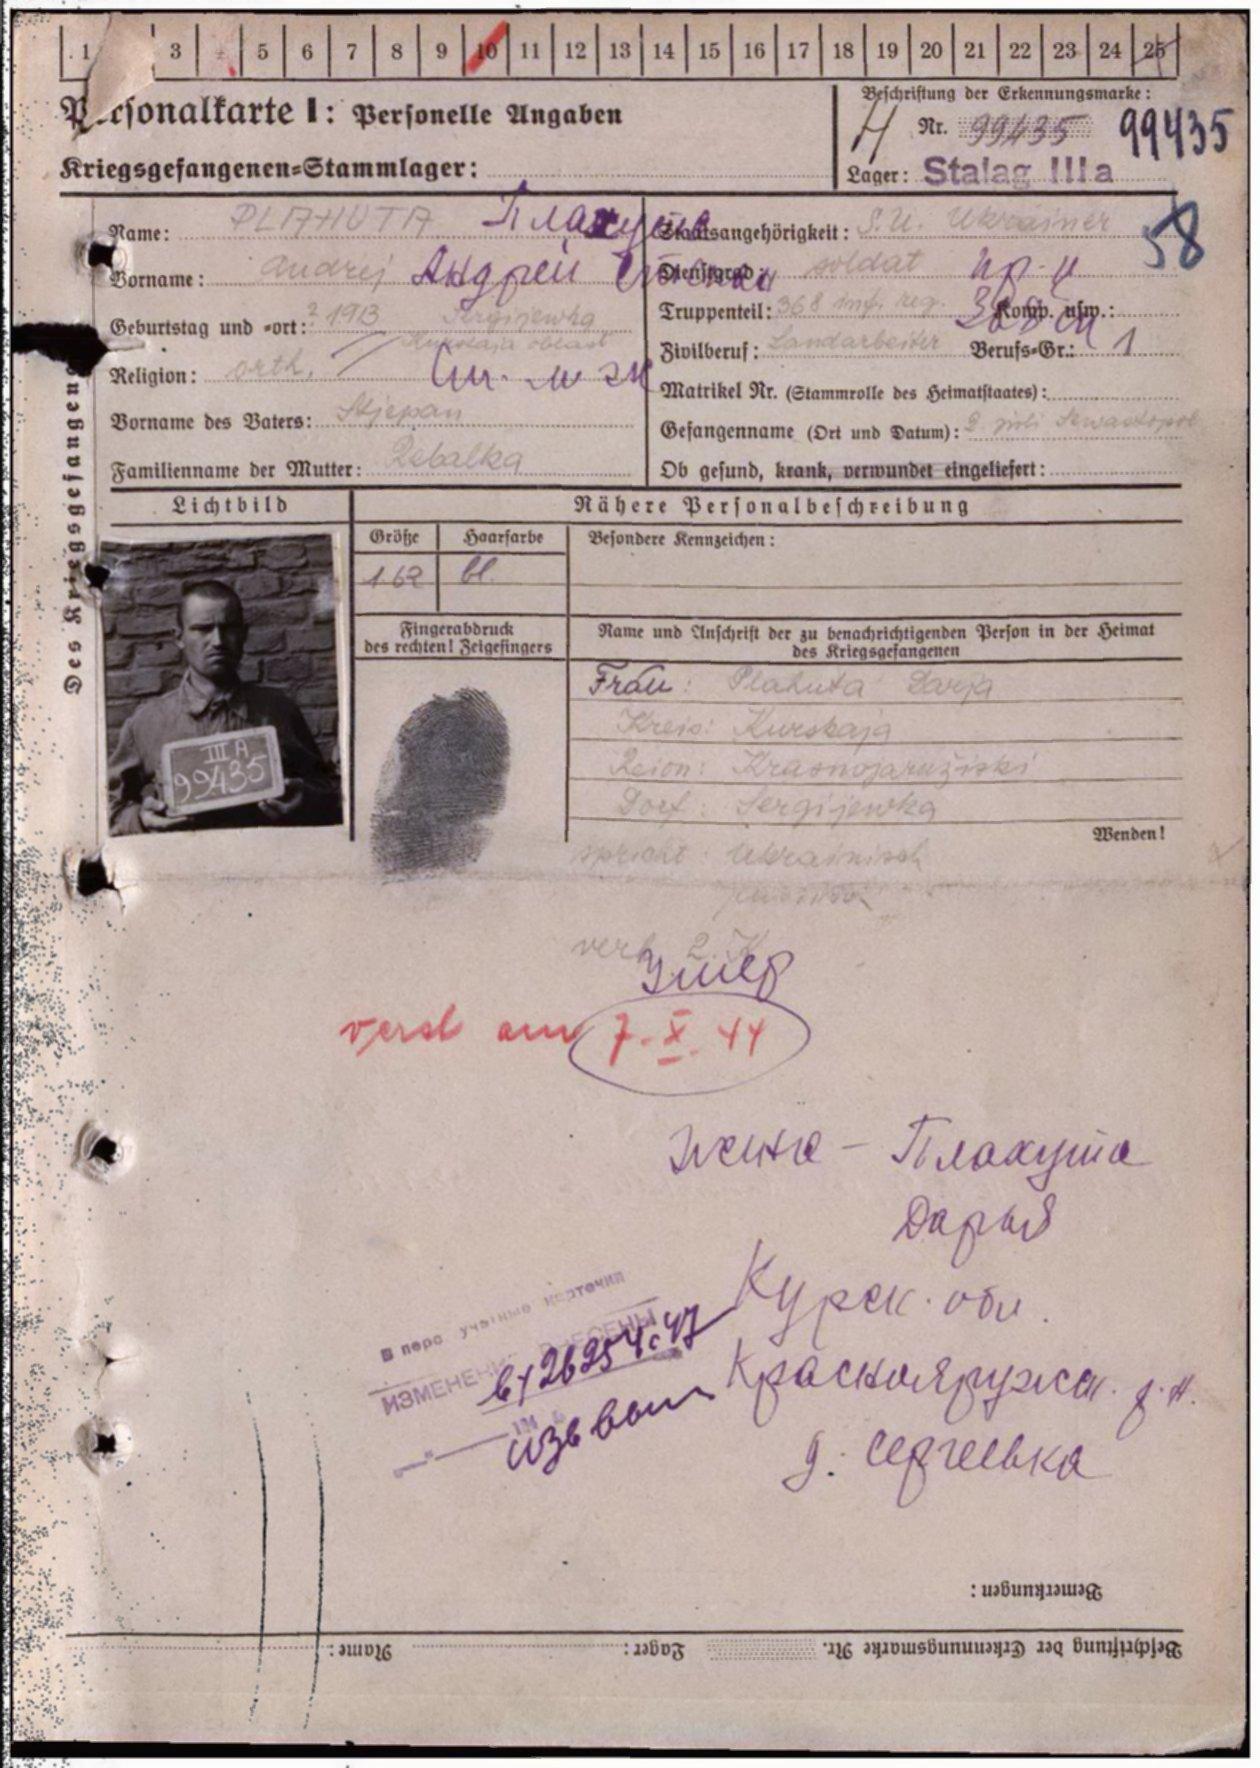 1 3 4 5 6 7 8 9 10 11 12 13 14 15 16 17 18 19 20 21 22 23 24 25
Personalkarte I: Personelle Angaben
Kriegsgefangenen-Stammlager:
Beschriftung der Erkennungsmarke:
H Nr. 99435 99435
Lager: Stalag IIIa
58
Des Kriegsgefangenen
Name: PLAHUTA Плахута
Vorname: Andrej Андрей
Geburtstag und -ort: ? 1913 Sergijewka
Kurskaja oblast
Religion: orth.
Vorname des Vaters: Stjepan
Familienname der Mutter: Rebalka
Staatsangehörigkeit: S.U. Ukrainer
Dienstgrad: soldat
Truppenteil: 368 inf. reg. Komp. usw.:
Zivilberuf: Landarbeiter Berufs-Gr.: 1
Matrikel Nr. (Stammrolle des Heimatstaates):
Gefangenname (Ort und Datum): 2. juli Sewastopol
Ob gesund, krank, verwundet eingeliefert:
Lichtbild
Nähere Personalbeschreibung
Größe Haarfarbe Besondere Kennzeichen:
162 bl.
Fingerabdruck
des rechten! Zeigefingers
Name und Anschrift der zu benachrichtigenden Person in der Heimat
des Kriegsgefangenen
Frau: Plahuta Darja
Kreis: Kurskaja
Reion: Krasnojaružiski
Dorf: Sergijewka
III A
99435
Wenden!
spricht: Ukrainisch
Умер
verst am 7.X.44
Жена - Плахута
Дарья
Курск. обл.
Краснояружск. р.н.
д. Сергеевка
В перс учетные карточки
ИЗМЕНЕНИЯ ВНЕСЕНЫ
Bemerkungen:
Beschriftung der Erkennungsmarke Nr. Lager: Name: